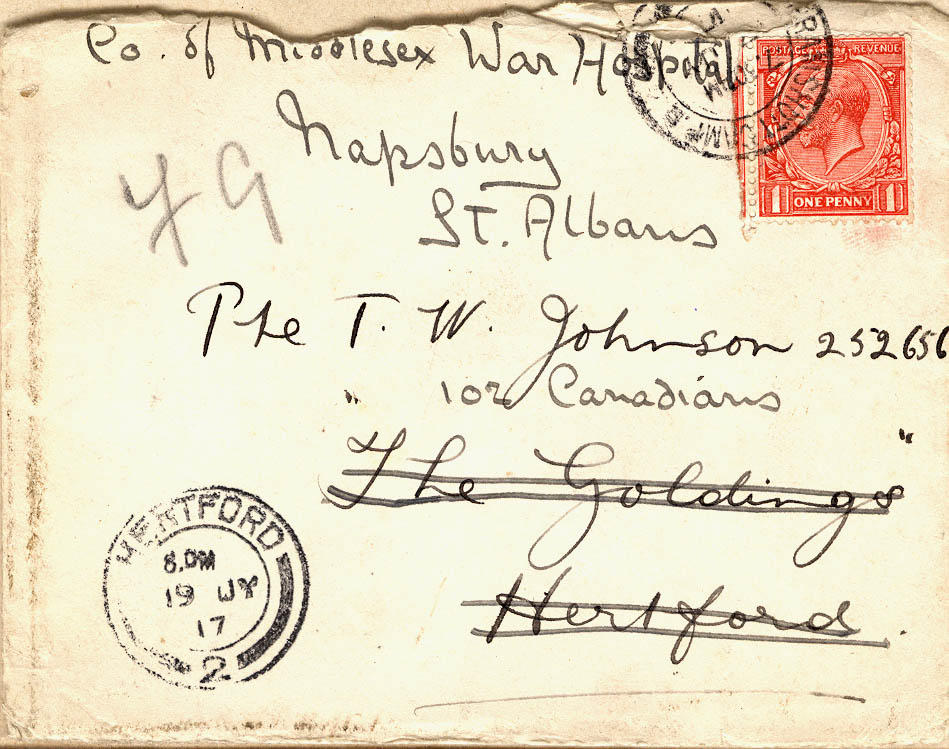 Co. of Middlesex War Hospital
Napsbury
St. Albans
Y G
POSTAGE REVENUE
1 ONE PENNY 1
Pte T. W. Johnson 252656
" 102 Canadians "
The Goldings
Hertford
HERTFORD
8.PM
19 JY
17
2